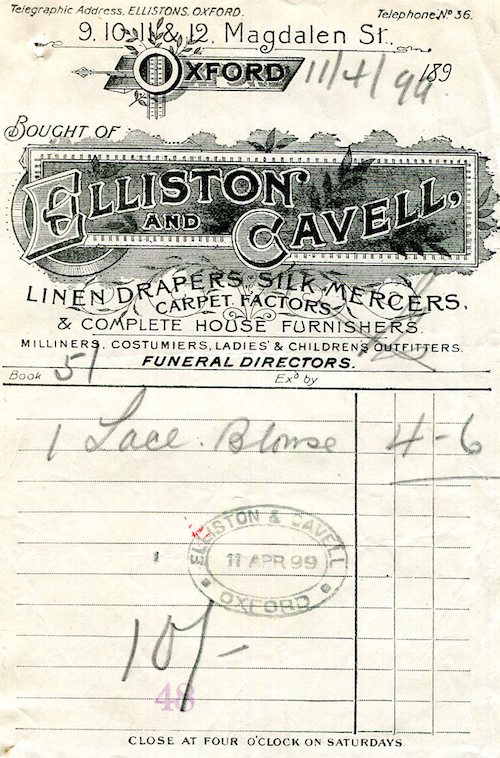 Telegraphic Address, ELLISTONS, OXFORD. Telephone Nº 36.
9, 10, 11 & 12, Magdalen St.,
OXFORD 11/4/99 189
BOUGHT OF
ELLISTON
AND CAVELL,
LINEN DRAPERS, SILK MERCERS,
CARPET FACTORS
& COMPLETE HOUSE FURNISHERS.
MILLINERS, COSTUMIERS, LADIES' & CHILDREN'S OUTFITTERS.
FUNERAL DIRECTORS.
Book 51 Exd by
1 Lace Blouse 4-6
ELLISTON & CAVELL
11 APR 99
OXFORD
10/-
48
CLOSE AT FOUR O'CLOCK ON SATURDAYS.